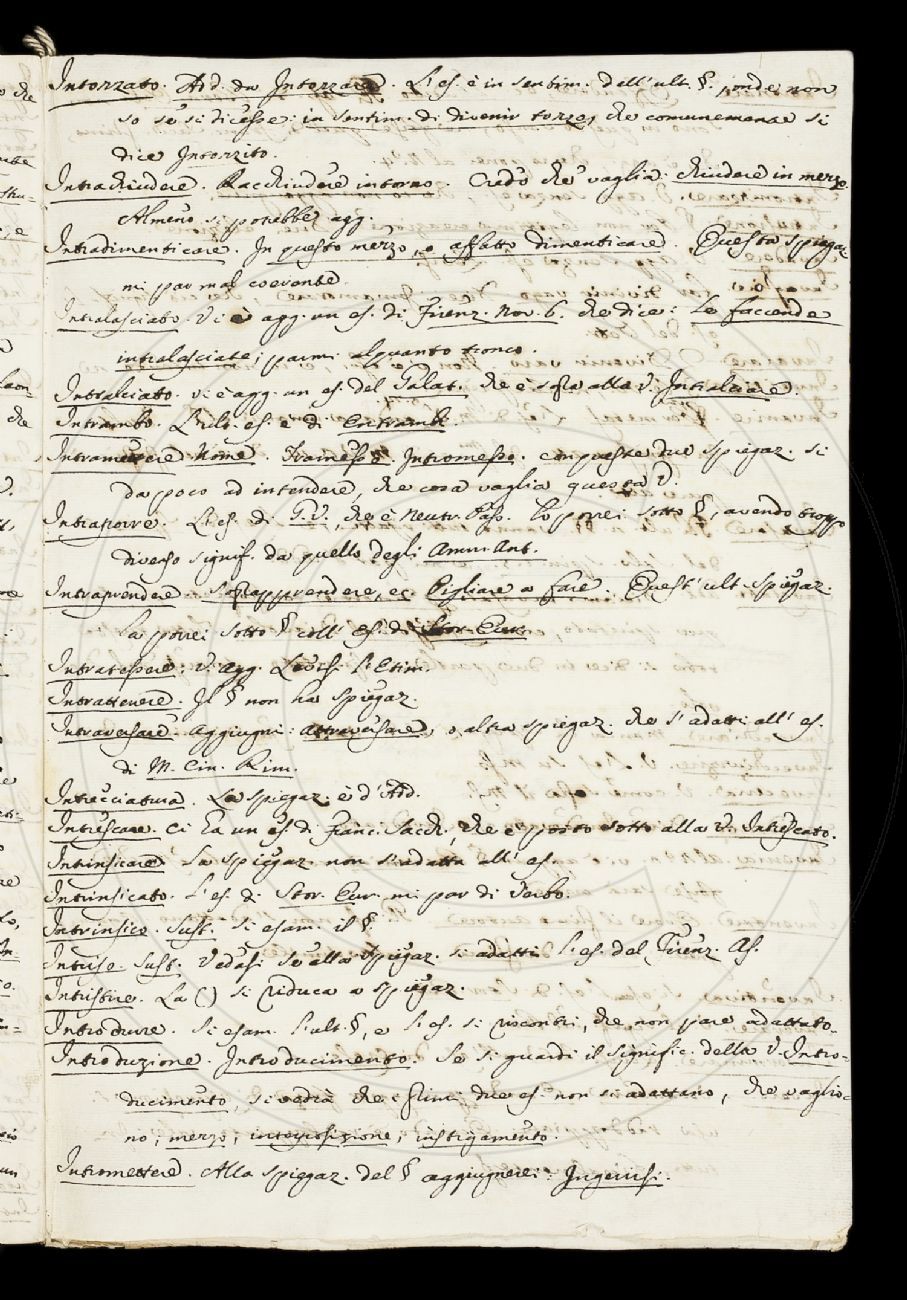 Intorzato. Add. da Intorzare. L'es. è in sentim. dell'ult. §. onde non
so se si dicesse: in sentim. di divenir torzo, che comunemente si
dice Intorzito.
Intrachiudere. Racchiudere intorno. Credo che vaglia: chiudere in mezzo.
Almeno si potrebbe agg.
Intradimenticare. In questo mezzo, o affatto dimenticare. Questa spiegaz.
mi par mal coerente.
Intralasciato. Vi è agg. un es. di Firenz. Nov. 6. che dice: Le faccende
intralasciate; parmi alquanto tronco.
Intralciato. vi è agg. un es. del Salat. che è sotto alla V. Intralciare.
Intrambo. L'ult. es. è di Entrambi.
Intramettere Nome. Tramesso Intromesso. con queste due spiegaz. si
da poco ad intendere, che cosa vaglia questa V.
Intraporre. L'es. di G. V., che è Neutr. Pass. lo porrei sotto §, avendo troppo
diverso signif. da quello degli Amm. Ant.
Intraprendere. Sottapprendere, ec. Pigliare a fare. Quest'ult. spiegaz.
la porrei sotto § coll' es. di Stor. Eur.
Intratessere: V. agg. Levisi l'Etim.
Intrattenere. Il § non ha spiegaz.
Intraversare. aggiugni: attraversare, o altra spiegaz. che s'adatti all' es.
di M. Cin. Rim.
Intrecciatura. La spiegaz. è d'Add.
Intrescare. Ci ha un es. di Franc. Sacch. che è posto sotto alla V. Intrescato.
Intrinsicare La spiegaz. non s'adatta all' es.
Intrinsicato. L'es. di Stor. Eur. mi par di Verbo.
Intrinsico. Sust. Si esam. il §.
Intriso. Sust. Vedasi se alla spiegaz. si adatti l'es. del Firenz. As.
Intristire. La () si riduca a spiegaz.
Introdurre. Si esam. l'ult. §, e l'es. si riscontri, che non pare adattato.
Introduzione. Introducimento. Se si guardi il signific. della V. Intro-
ducimento, si vedrà che i primi due es. non si adattano, che vaglio-
no; mezzo; interposizione; instigamento.
Intromettere. Alla spiegaz. del § aggiugnerei: Ingerirsi.